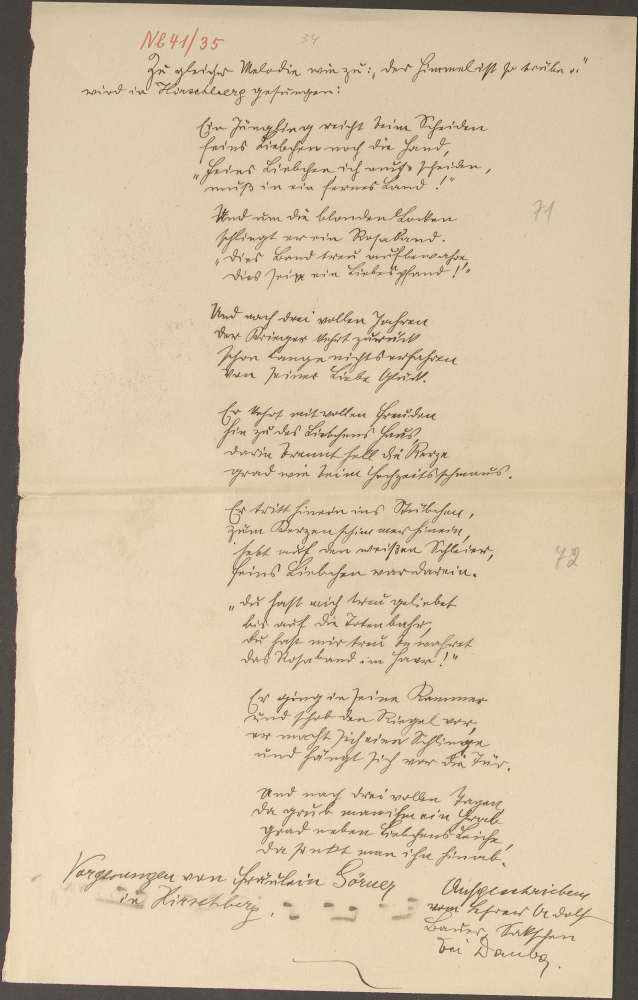 NB 41/35
34
Zu gleicher Melodie wie zu: "Der Himmel ist so trübe"
wird in Hirschberg gesungen:
Ein Jüngling reicht beim Scheiden
feins Liebchen noch die Hand,
"Feins Liebchen ich muß scheiden,
muß in ein fernes Land!"
Und um die blonden Locken
schlingt er ein Rosaband.
"Dies Band treu aufbewahre
Dies sei ein Liebespfand!"
71
Und nach drei vollen Jahren
der Krieger kehrt zurück
schon lange nichts erfahren
von seiner Liebe Glück.
Er kehrt mit vollen Freuden
hin zu des Liebchens Haus,
darin brennt hell die Kerze
grad wie beim Hochzeitsschmaus.
Er tritt hinein ins Stübchen,
zum Kerzenschimmer hinein,
hebt auf den weißen Schleier,
feins Liebchen war darein.
72
"Du hast mich treu geliebet
bis auf die Totenbahr,
du hast mir treu bewahret
das Rosaband im Haar!"
Er ging in seine Kammer
und schob den Riegel vor,
er macht sich eine Schlinge
und hängt sich vor die Tür.
Und nach drei vollen Tagen
da grub man ihm ein Grab
grad neben Liebchens Leiche,
da senkt man ihn hinab.
Vorgesungen von Fräulein
in Hirschberg.
Aufgeschrieben
vom Lehrer Adolf
Bauer,
bei Dauba.